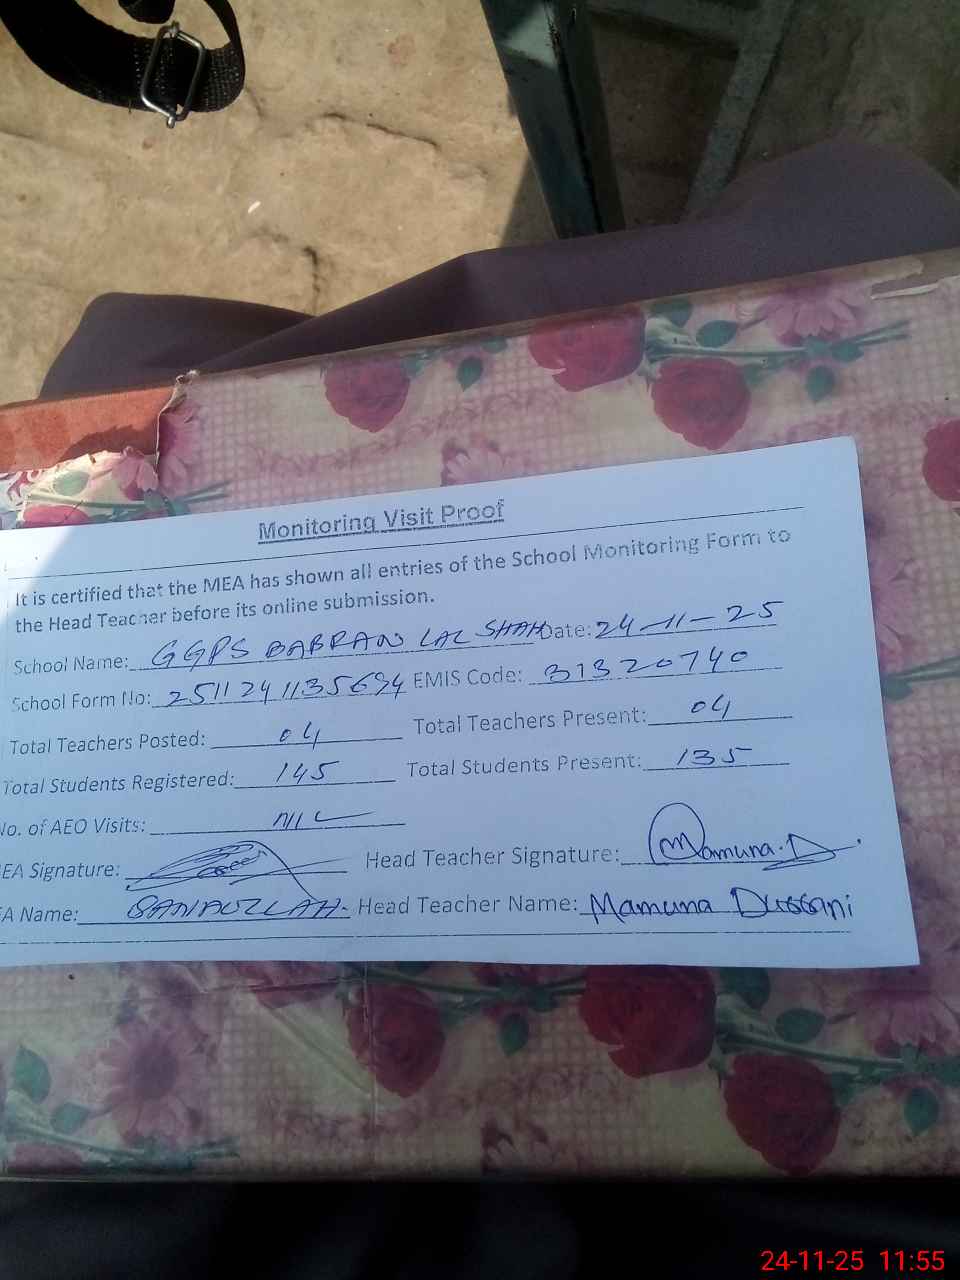 Monitoring Visit Proof
It is certified that the MEA has shown all entries of the School Monitoring Form to
the Head Teacher before its online submission.
School Name: GGPS BABRAN LAL SHAH Date: 24-11-25
School Form No: 2511241135694 EMIS Code: 31320740
Total Teachers Posted: 04 Total Teachers Present: 04
Total Students Registered: 145 Total Students Present: 135
No. of AEO Visits: NIL
EA Signature: Head Teacher Signature: Mamuna.D
A Name: SANAULLAH Head Teacher Name: Mamuna
24-11-25 11:55